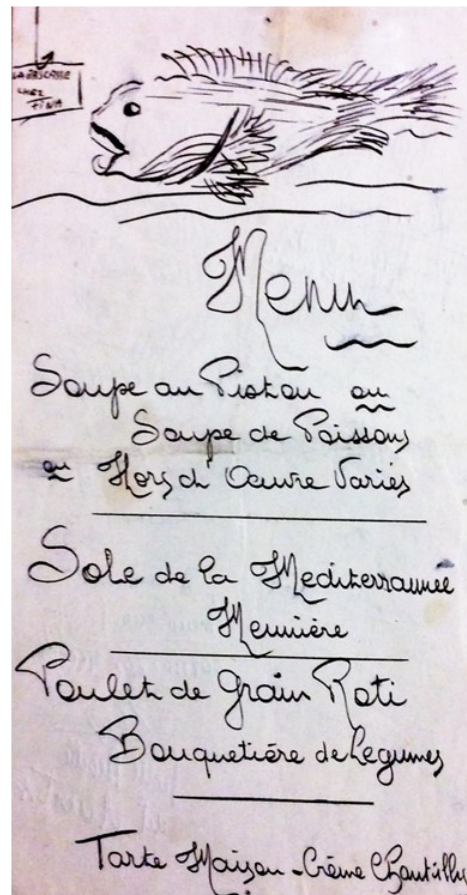 LA RASCASSE
CHEZ
FINA
Menu
Soupe au Pistou ou
Soupe de Poissons
ou Hors d Oeuvre Variés
Sole de la Mediterrannée
Meunière
Poulet de grain Roti
Bouquetière de Legumes
Tarte Maison - Crème Chantilly